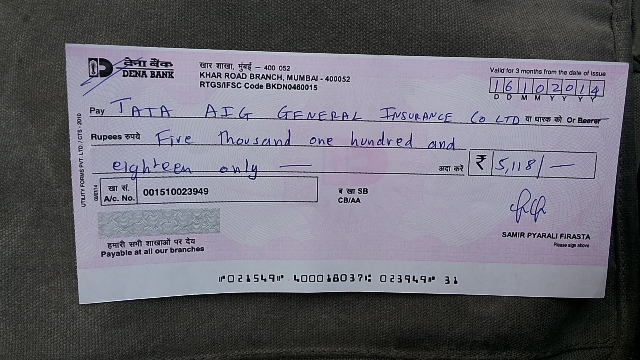 देना बैंक
DENA BANK
खार शाखा, मुंबई - 400 052
KHAR ROAD BRANCH, MUMBAI - 400052
RTGS/IFSC Code BKDN0460015
Valid for 3 months from the date of issue
16102014
D D M M Y Y Y Y
Pay TATA AIG GENERAL INSURANCE CO LTD या धारक को Or Bearer
Rupees रुपये Five thousand one hundred and
eighteen only —
अदा करें ₹ 5,118/—
खा सं. A/c. No. 001510023949
ब खा SB
CB/AA
हमारी सभी शाखाओं पर देय
Payable at all our branches
SAMIR PYARALI FIRASTA
Please sign above
UTILITY FORMS PVT. LTD. / CTS - 2010
⑈021549⑈ 400018037⑆ 023949⑈ 31